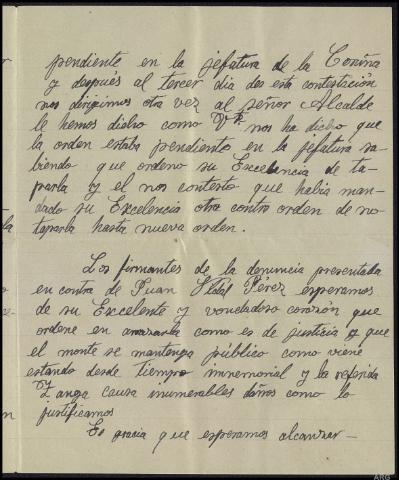 pendiente en la jefatura de la Coruña
y después al tercer dia des esta contestación
nos dirijimos otra vez al señor Alcalde
le hemos dicho como Vª nos ha dicho que
la orden estaba pendiento en la jefatura sa-
biendo que ordeno su Excelencia de ta-
parla y el nos contesto que habia man-
dado su Excelencia otra contro orden de no
taparla hasta nueva orden.
Los firmantes de la denuncia presentada
en contra de Juan Vidal Pérez esperamos
de su Excelente y vondadoso corazón que
ordene en arrasarla como es de justicia y que
el monte se mantenga público como viene
estando desde tiempo inmemorial y la referida
Zanga causa inumerables daños como lo
justificamos
Es gracia que esperamos alcanzar-
ARG